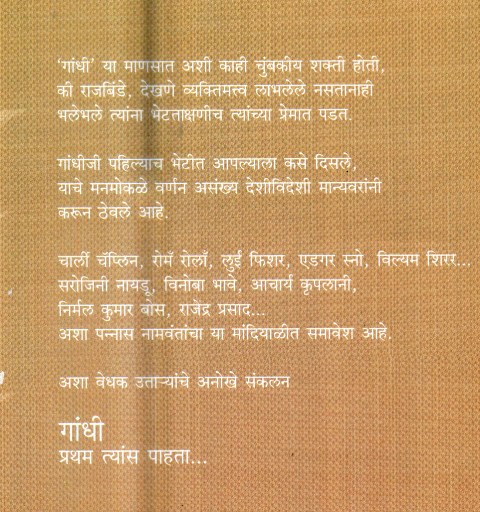 ‘गांधी’ या माणसात अशी काही चुंबकीय शक्ती होती,
की राजबिंडे, देखणे व्यक्तिमत्त्व लाभलेले नसतानाही
भलेभले त्यांना भेटताक्षणीच त्यांच्या प्रेमात पडत.
गांधीजी पहिल्याच भेटीत आपल्याला कसे दिसले,
याचे मनमोकळे वर्णन असंख्य देशीविदेशी मान्यवरांनी
करून ठेवले आहे.
चार्ली चॅप्लिन, रोमँ रोलाँ, लुई फिशर, एडगर स्नो, विल्यम शिरर...
सरोजिनी नायडू, विनोबा भावे, आचार्य कृपलानी,
निर्मल कुमार बोस, राजेंद्र प्रसाद...
अशा पन्नास नामवंतांचा या मांदियाळीत समावेश आहे.
अशा वेधक उताऱ्यांचे अनोखे संकलन
गांधी
प्रथम त्यांस पाहता...